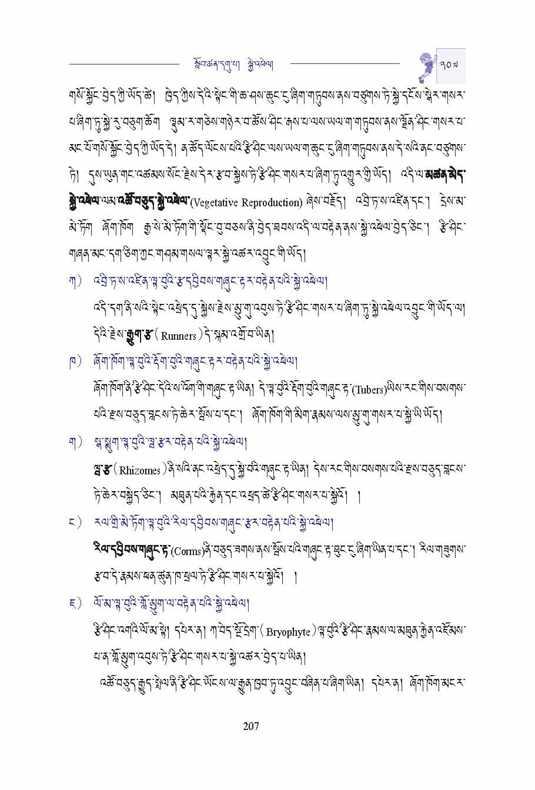 སློབ་ཚན་དགུ་པ། སྐྱེ་འཕེལ།
༢༠༧
གསོ་སྐྱོང་བྱེད་ཀྱི་ཡོད་ཚེ། ཁྱེད་ཀྱིས་དེའི་སྟེང་གི་ཆ་ཤས་ཆུང་ངུ་ཞིག་གཏུབས་ནས་བཙུགས་ཏེ་སྐྱེ་དངོས་སྡེར་གསར་
པ་ཞིག་ཏུ་སྐྱེ་རུ་བཅུག་ཆོག ལྡུམ་ར་གཅེས་གཉེར་བ་ཚོས་ཤིང་རྒས་པ་ལས་ཡལ་ག་གཏུབས་ནས་སྔོན་ཤིང་གསར་པ་
མང་པོ་གསོ་སྐྱོང་བྱེད་ཀྱི་ཡོད་དེ། ན་ཚོད་ལོངས་པའི་རྩི་ཤིང་ལས་ཡལ་ག་ཆུང་ངུ་ཞིག་གཏུབས་ནས་དེ་སའི་ནང་བཙུགས་
ཏེ། དུས་ཡུན་གང་འཚམས་སོང་རྗེས་དེར་རྩ་བ་སྐྱེས་ཏེ་རྩི་ཤིང་གསར་པ་ཞིག་ཏུ་འགྱུར་གྱི་ཡོད། འདི་ལ་མཚན་མེད་
སྐྱེ་འཕེལ་ལམ་འཚོ་བཅུད་སྐྱེ་འཕེལ་(Vegetative Reproduction) ཞེས་བརྗོད། འབྲི་ཏ་ས་འཛིན་དང་། དྲེས་མ་
མེ་ཏོག ཞོག་ཁོག རྒྱ་སེ་མེ་ཏོག་གི་སྡོང་བུ་བཅས་ནི་བྱེད་ཐབས་འདི་ལ་བརྟེན་ནས་སྐྱེ་འཕེལ་བྱེད་ཅིང་། རྩི་ཤིང་
གཞན་མང་དག་ཅིག་ཀྱང་གཤམ་གསལ་ལྟར་སྐྱེ་འཚར་འབྱུང་གི་ཡོད།
ཀ) འབྲི་ཏ་ས་འཛིན་ལྟ་བུའི་རྩ་དབྱིབས་གཞུང་རྟར་བརྟེན་པའི་སྐྱེ་འཕེལ།
འདི་དག་ནི་སའི་སྟེང་འཕྲེད་དུ་སྐྱེས་རྗེས་མྱུ་གུ་འབུས་ཏེ་རྩི་ཤིང་གསར་པ་ཞིག་ཏུ་སྐྱེ་འཕེལ་འབྱུང་གི་ཡོད་ལ།
དེའི་རྗེས་རྒྱུག་རྩ་( Runners )དེ་སྐམ་འགྲོ་བ་ཡིན།
ཁ) ཞོག་ཁོག་ལྟ་བུའི་རྡོག་བུའི་གཞུང་རྟར་བརྟེན་པའི་སྐྱེ་འཕེལ།
ཞོག་ཁོག་ནི་རྩི་ཤིང་དེའི་ས་འོག་གི་གཞུང་རྟ་ཡིན། དེ་ལྟ་བུའི་རྡོག་བུའི་གཞུང་རྟ་(Tubers)ཡིས་རང་གིས་བསགས་
པའི་རྫས་བཅུད་བླངས་ཏེ་ཆེར་སྦོས་པ་དང་། ཞོག་ཁོག་གི་མིག་རྣམས་ལས་མྱུ་གུ་གསར་པ་སྐྱེ་ཡི་ཡོད།
ག) སྒ་སྨུག་ལྟ་བུའི་ལྟ་རྩར་བརྟེན་པའི་སྐྱེ་འཕེལ།
ལྟ་རྩ་( Rhizomes )ནི་སའི་ནང་འཕྲེད་དུ་སྐྱེ་བའི་གཞུང་རྟ་ཡིན། དེས་རང་གིས་བསགས་པའི་རྫས་བཅུད་བླངས་
ཏེ་ཆེ་རུ་བསྐྱེད་ཅིང་། མཐུན་པའི་རྐྱེན་དང་འཕྲད་ཚེ་རྩི་ཤིང་གསར་པ་སྐྱེའོ། །
ང) རལ་གྲི་མེ་ཏོག་ལྟ་བུའི་རིལ་དབྱིབས་གཞུང་རྩར་བརྟེན་པའི་སྐྱེ་འཕེལ།
རིལ་དབྱིབས་གཞུང་རྟ་(Corms)ནི་བཅུད་ཟགས་ནས་སྦོས་པའི་གཞུང་རྟ་ཐུང་ངུ་ཞིག་ཡིན་པ་དང་། རིལ་གཟུགས་
རྩ་བ་དེ་རྣམས་ཕན་ཚུན་ཁ་ཕྲལ་ཏེ་རྩི་ཤིང་གསར་པ་སྐྱེའོ། །
ཅ) ལོ་མ་ལྟ་བུའི་གློ་མྱུག་ལ་བརྟེན་པའི་སྐྱེ་འཕེལ།
རྩི་ཤིང་འགའི་ལོ་མ་སྟེ། དཔེར་ན། ཀ་བེད་སྔོ་དྲེག་( Bryophyte )ལྟ་བུའི་རྩི་ཤིང་རྣམས་ལ་མཐུན་རྐྱེན་འཛོམས་
པ་ན་གློ་མྱུག་འབུས་ཏེ་རྩི་ཤིང་གསར་པ་སྐྱེ་འཚར་བྱེད་པ་ཡིན།
འཚོ་བཅུད་རྒྱུད་སྤེལ་ནི་རྩི་ཤིང་ཡོངས་ལ་རྒྱུན་ཁྱབ་ཏུ་འབྱུང་བཞིན་པ་ཞིག་ཡིན། དཔེར་ན། ཞོག་ཁོག་མངར་
207